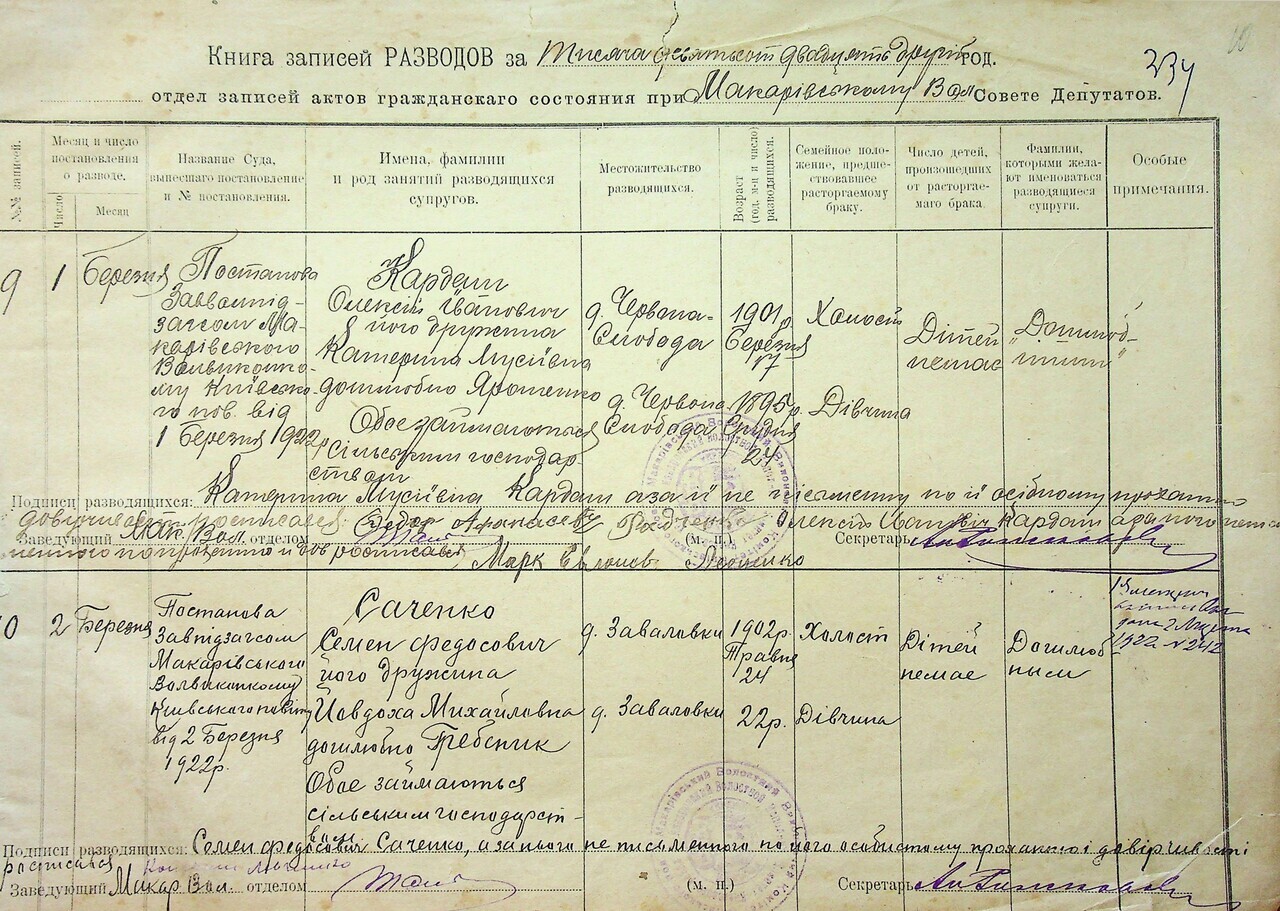 Книга записей РАЗВОДОВ за Тисяча девятьсот двадцять другій год.
отдел записей актов гражданскаго состояния при Макарівському Вол Совете Депутатов.
234
№№ записей.
Месяц и число постановления о разводе.
Число
Месяц
Название Суда, вынесшаго постановление и № постановления.
Имена, фамилии и род занятий разводящихся супругов.
Местожительство разводящихся.
Возраст (год, м-ц и число) разводящихся.
Семейное положение, предшествовавшее расторгаемому браку.
Число детей, происшедших от расторгаемаго брака.
Фамилии, которыми желают именоваться разводящиеся супруги.
Особые примечания.
9
1
Березня
Постанова
Макарівського
Київсько-
го пов. від
1 Березня 1922р
Кардаш
Олексій Іванович
його дружина
Катерина Мусіївна
дошлюбно Ярошенко
Обоє займаються
сільським господар-
ством
д. Червона-
Слобода
д. Червона
Слобода
1901р.
Березня
17
1895р.
Грудня
24
Холост
Дівчина
Дітей
немає
Подписи разводящихся: Катерина Мусіївна Кардаш а за її не письменну по її осібному проханню
Федор Олексій Іванович Кардаш
Заведующий Мак. Вол. отделом (м. п.) Секретарь
Марк
10
2
Березня
Постанова
Завпідзагсом
Макарівського
Волвиконкому
Київського повіту
від 2 Березня
1922р.
Саченко
Семен Федосович
його дружина
Йовдоха Михайловна
дошлюбно Гребеник
Обоє займаються
сільським господарст-
вом
д. Заваловки
д. Заваловки
1902р.
Травня
24
22р.
Холост
Дівчина
Дітей
немає
Дошлюб
ными
1922г. № 242
Подписи разводящихся: Семен Федосович Саченко, а за нього не письменного по його особистому проханню і довірчивості
росписався
Заведующий Макар Вол. отделом (м. п.) Секретарь